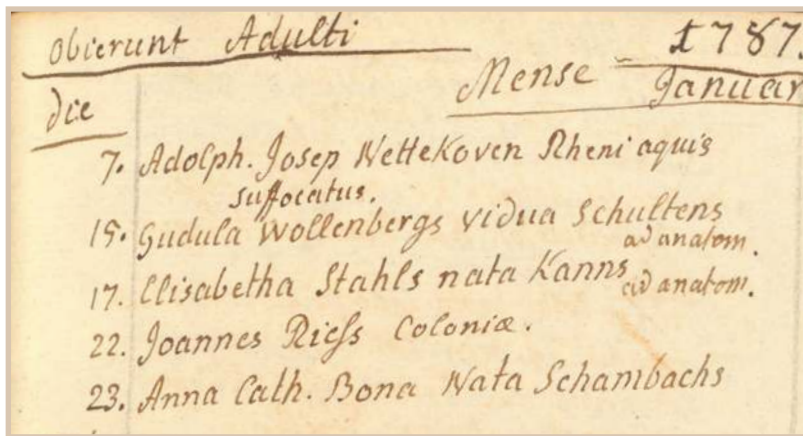 Obierunt Adulti 1787.
Mense Januar
die
7. Adolph. Josep Nettekoven Rheni aquis
suffocatus.
15. Gudula Wollenbergs vidua Schultens
ad anatom.
17. Elisabetha Stahls nata Kanns
ad anatom.
22. Joannes Riess Coloniæ.
23. Anna Cath. Bona Nata Schambachs